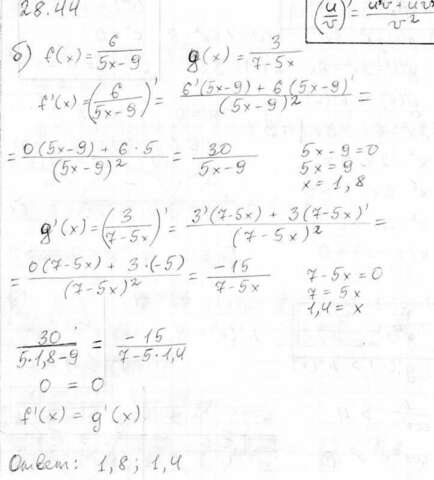 28.44
(u/v)' = (u'v + uv')/v²
б) f(x) = 6/(5x-9)   g(x) = 3/(7-5x)
f'(x) = (6/(5x-9))' = (6'(5x-9) + 6(5x-9)')/(5x-9)² =
= (0(5x-9) + 6·5)/(5x-9)² = 30/(5x-9)   5x-9=0
5x=9
x=1,8
g'(x) = (3/(7-5x))' = (3'(7-5x) + 3(7-5x)')/(7-5x)² =
= (0(7-5x) + 3·(-5))/(7-5x)² = -15/(7-5x)   7-5x=0
7=5x
1,4=x
30/(5·1,8-9) = -15/(7-5·1,4)
0 = 0
f'(x) = g'(x)
Ответ: 1,8; 1,4